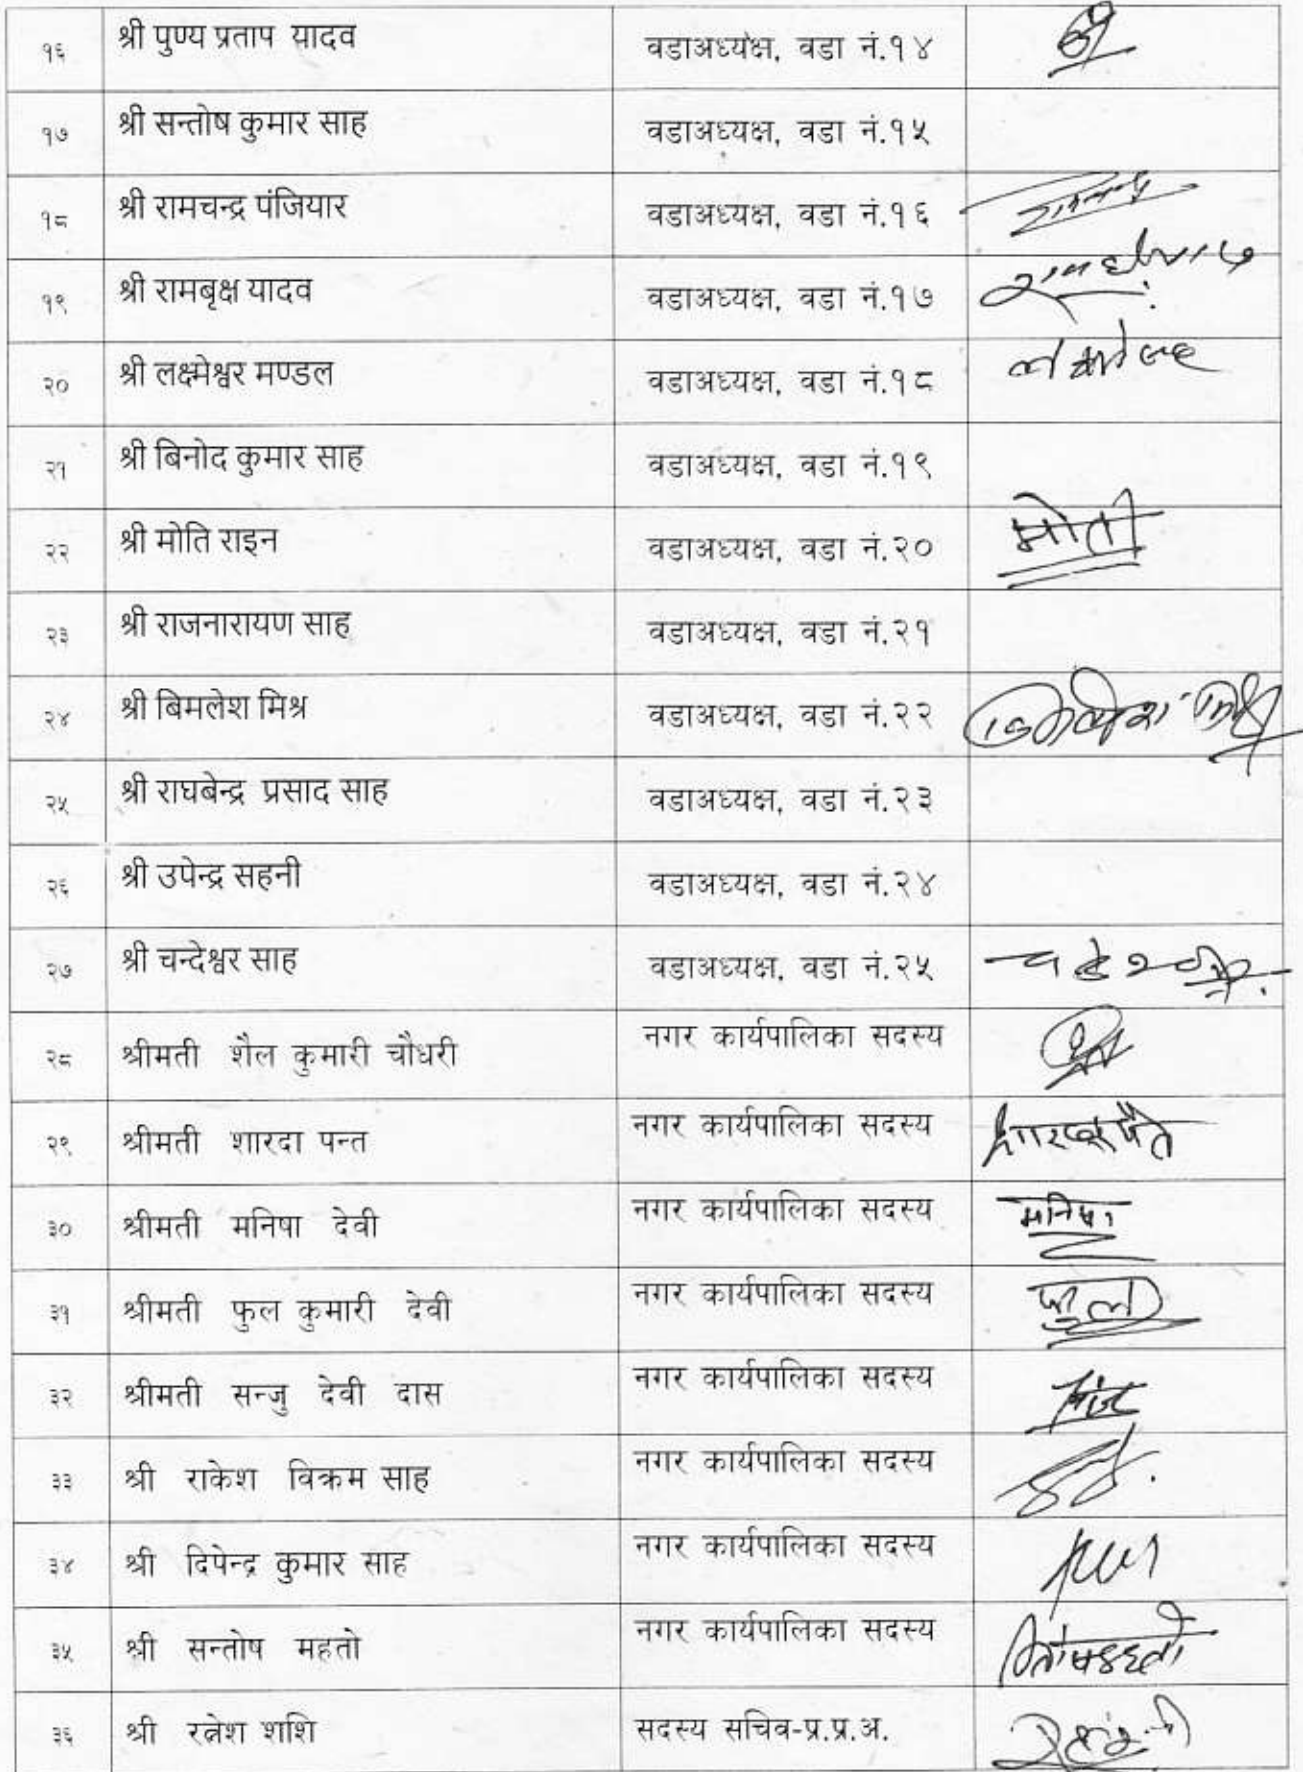 १६ श्री पुण्य प्रताप यादव वडाअध्यक्ष, वडा नं.१४
१७ श्री सन्तोष कुमार साह वडाअध्यक्ष, वडा नं.१५
१८ श्री रामचन्द्र पंजियार वडाअध्यक्ष, वडा नं.१६
१९ श्री रामबृक्ष यादव वडाअध्यक्ष, वडा नं.१७
२० श्री लक्ष्मेश्वर मण्डल वडाअध्यक्ष, वडा नं.१८
२१ श्री बिनोद कुमार साह वडाअध्यक्ष, वडा नं.१९
२२ श्री मोति राइन वडाअध्यक्ष, वडा नं.२० मोती
२३ श्री राजनारायण साह वडाअध्यक्ष, वडा नं.२१
२४ श्री बिमलेश मिश्र वडाअध्यक्ष, वडा नं.२२
२५ श्री राघबेन्द्र प्रसाद साह वडाअध्यक्ष, वडा नं.२३
२६ श्री उपेन्द्र सहनी वडाअध्यक्ष, वडा नं.२४
२७ श्री चन्देश्वर साह वडाअध्यक्ष, वडा नं.२५
२८ श्रीमती शैल कुमारी चौधरी नगर कार्यपालिका सदस्य
२९ श्रीमती शारदा पन्त नगर कार्यपालिका सदस्य
३० श्रीमती मनिषा देवी नगर कार्यपालिका सदस्य मनिषा
३१ श्रीमती फुल कुमारी देवी नगर कार्यपालिका सदस्य फुल
३२ श्रीमती सन्जु देवी दास नगर कार्यपालिका सदस्य
३३ श्री राकेश विक्रम साह नगर कार्यपालिका सदस्य
३४ श्री दिपेन्द्र कुमार साह नगर कार्यपालिका सदस्य
३५ श्री सन्तोष महतो नगर कार्यपालिका सदस्य
३६ श्री रत्नेश शशि सदस्य सचिव-प्र.प्र.अ.